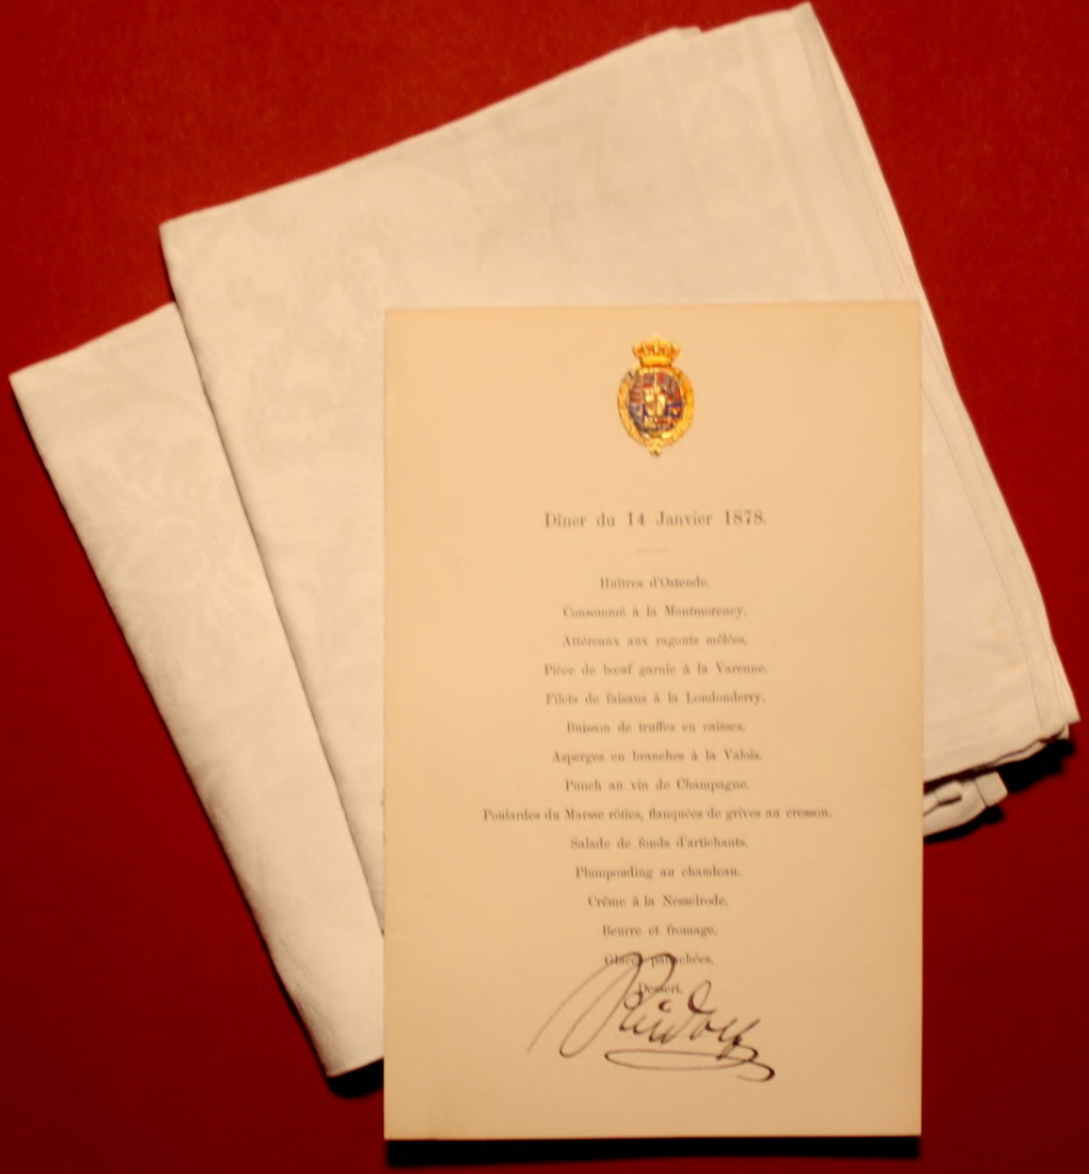 Dîner du 14 Janvier 1878.
Huîtres d'Ostende.
Consommé à la Montmorency.
Attéreaux aux ragouts mêlées.
Pièce de bœuf garnie à la Varenne.
Filets de faisans à la Londonderry.
Buisson de truffes en caisses.
Asperges en branches à la Valois.
Punch au vin de Champagne.
Poulardes du Mansse rôties, flanquées de grives au cresson.
Salade de fonds d'artichauts.
Plumpouding au chaudeau.
Crême à la Nesselrode.
Beurre et fromage.
Glaces panachées.
Dessert.
Rudolf